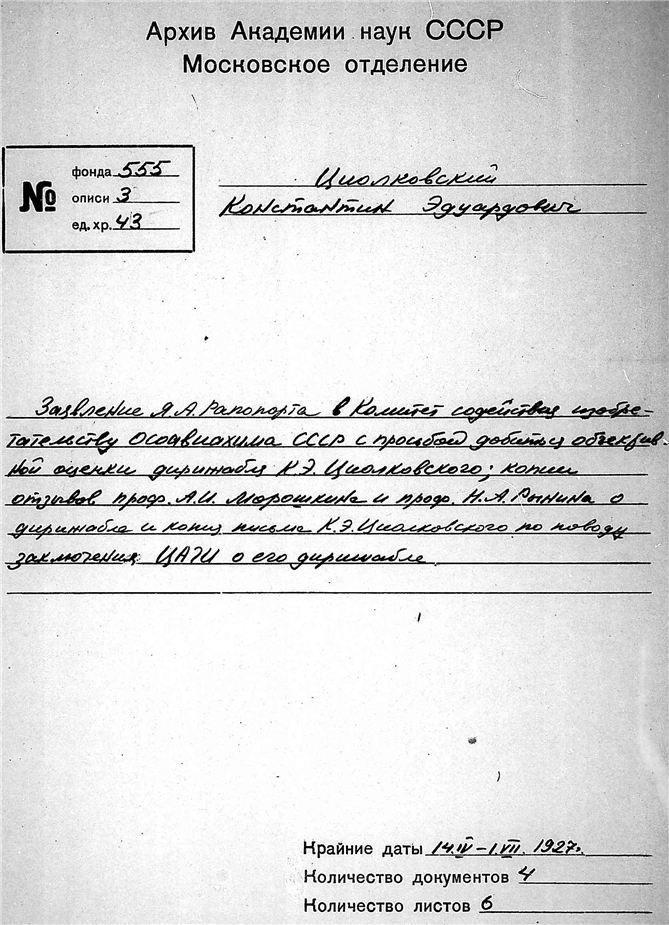 Архив Академии наук СССР
Московское отделение
№
фонда 555
описи 3
ед. хр. 43
Циолковский
Константин Эдуардович
Заявление Я.А. Рапопорта в Комитет содействия изобре-
тательству Осоавиахима СССР с просьбой добиться объектив-
ной оценки дирижабля К.Э. Циолковского; копии
отзывов проф. А.И. Морошкина и проф. Н.А. Рынина о
дирижабле и копия письма К.Э. Циолковского по поводу
заключения ЦАГИ о его дирижабле
Крайние даты 14.IV–1.VII. 1927г.
Количество документов 4
Количество листов 6